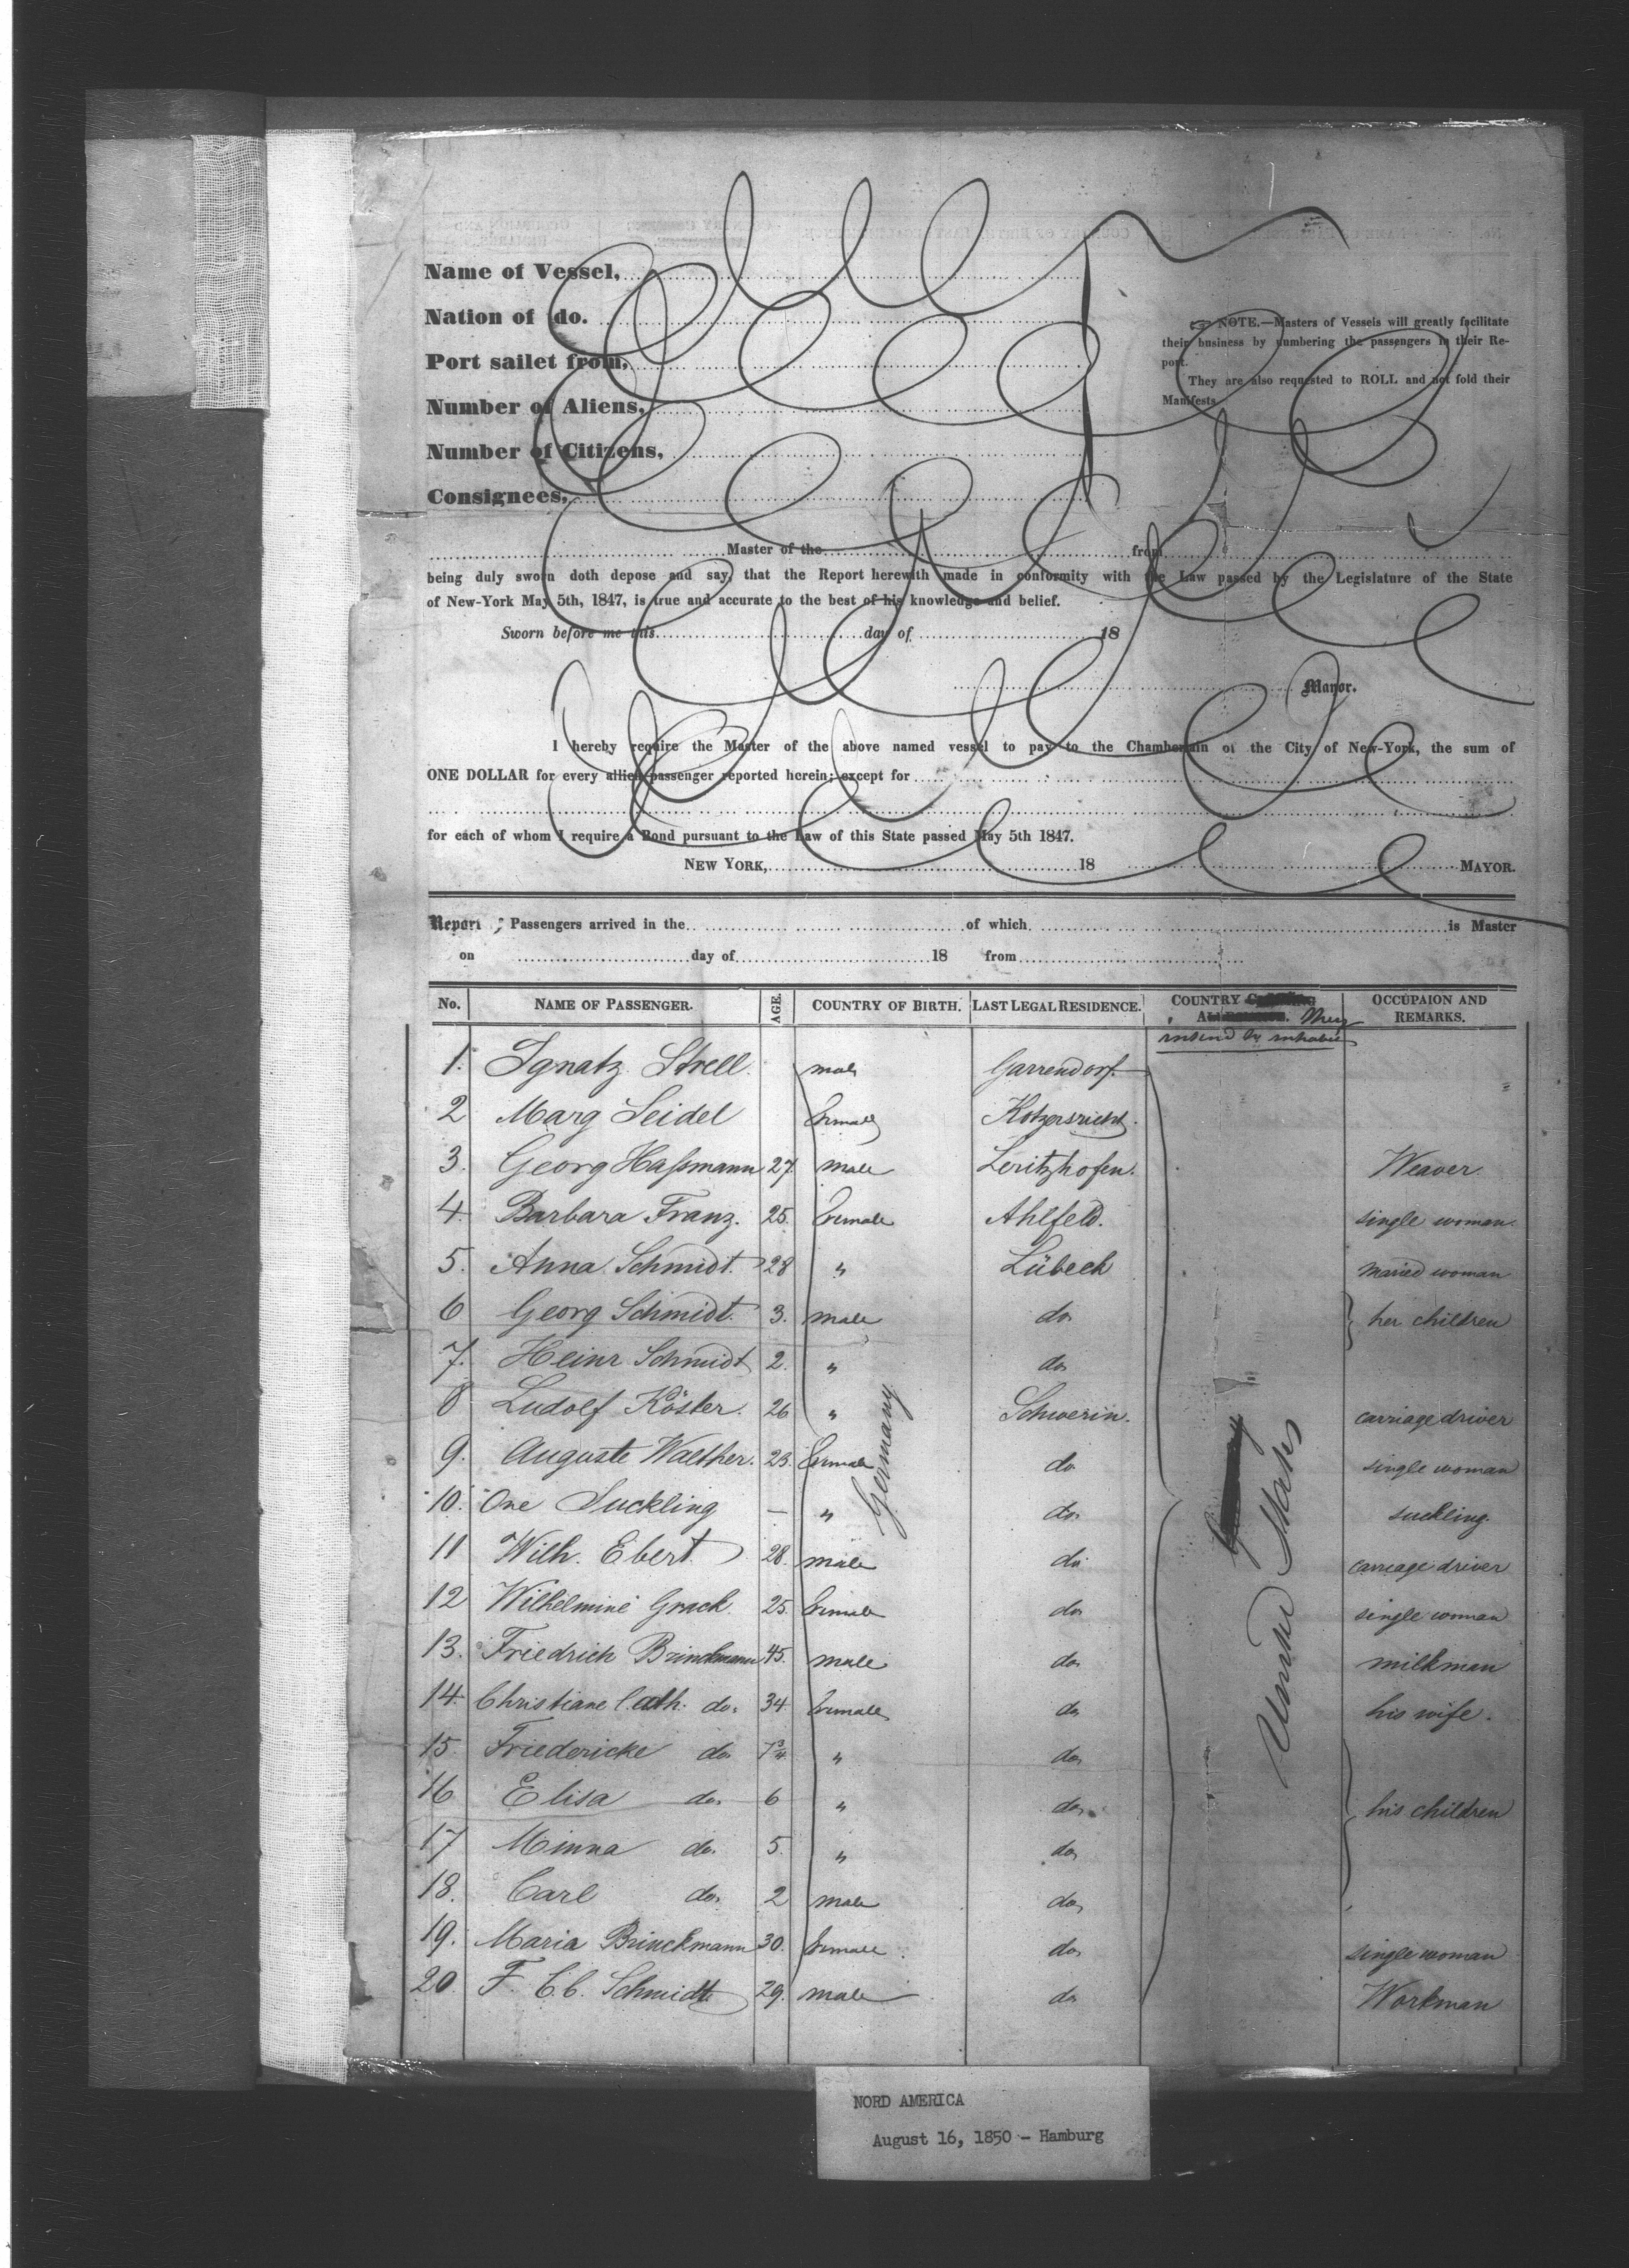 Name of Vessel,
Nation of do.
Port sailet from,
Number of Aliens,
Number of Citizens,
Consignees,
NOTE.—Masters of Vessels will greatly facilitate
their business by numbering the passengers in their Re-
port.
They are also requested to ROLL and not fold their
Manifests
Master of the from
being duly sworn doth depose and say, that the Report herewith made in conformity with the Law passed by the Legislature of the State
of New-York May 5th, 1847, is true and accurate to the best of his knowledge and belief.
Sworn before me this day of 18
Mayor.
I hereby require the Master of the above named vessel to pay to the Chamberlain of the City of New-York, the sum of
ONE DOLLAR for every allien passenger reported herein; except for
for each of whom I require a Bond pursuant to the Law of this State passed May 5th 1847.
NEW YORK, 18 MAYOR.
Report ; Passengers arrived in the of which is Master
on day of 18 from
No. NAME OF PASSENGER. AGE. COUNTRY OF BIRTH. LAST LEGAL RESIDENCE. COUNTRY They intend to OCCUPAION AND REMARKS.
1. Ignatz Strell. male Garrendorf.
2 Marg Seidel female Kotzersricht.
3. Georg Haßmann 27 male Leritzhofen. Weaver
4. Barbara Franz. 25. female Ahlfeld. single woman
5. Anna Schmidt. 28 " Lübeck maried woman
6 Georg Schmidt. 3. male do her children
7. Heinr Schmidt 2. " do
8 Ludolf Köster. 26 " Schwerin. carriage driver
9. Auguste Walther. 23. female do single woman
10. One Suckling — " do suckling
11 Wilh. Ebert 28. male do carriage driver
12 Wilhelmine Grack 25. female do single woman
13. Friedrich Brinckmann 45. male do milkman
14. Christiane Cath. do. 34. female do his wife.
15. Friedericke do 7¾ " do
16 Elisa do. 6 " do his children
17 Minna do. 5. " do
18. Carl do. 2 male do
19. Maria Brinckmann 30. female do single woman
20 F. C. C. Schmidt 29. male do Workman
Germany
United States
NORD AMERICA
August 16, 1850 - Hamburg